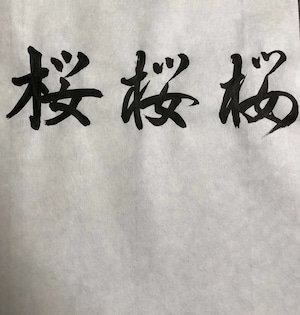 桜桜桜